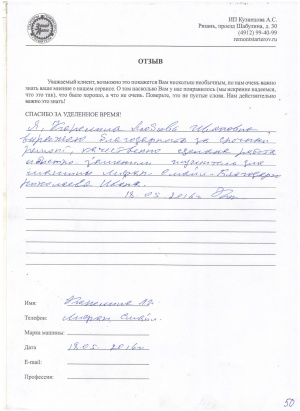 ИП Кузнецова А.С.
Рязань, проезд Шабулина, д. 30
(4912) 99-40-99
remontstarterov.ru
ОТЗЫВ
Уважаемый клиент, возможно это покажется Вам несколько необычным, но нам очень важно
знать ваше мнение о нашем сервисе. О том насколько Вам у нас понравилось (мы искренне надеемся,
что это так), что было хорошо, а что не очень. Поверьте, это не пустые слова. Нам действительно
важно это знать!
СПАСИБО ЗА УДЕЛЕННОЕ ВРЕМЯ!
Я, Любовь Ивановна,
выражаю благодарность за срочный
ремонт, качественно сделана работа
и быстро заменили для
машины Лифан Смайл. Благодарю
Николаева Ивана.
18.05.2016г.
Имя:
Телефон: Лифан Смайл.
Марка машины:
Дата 18.05.2016г
E-mail:
Профессия:
50